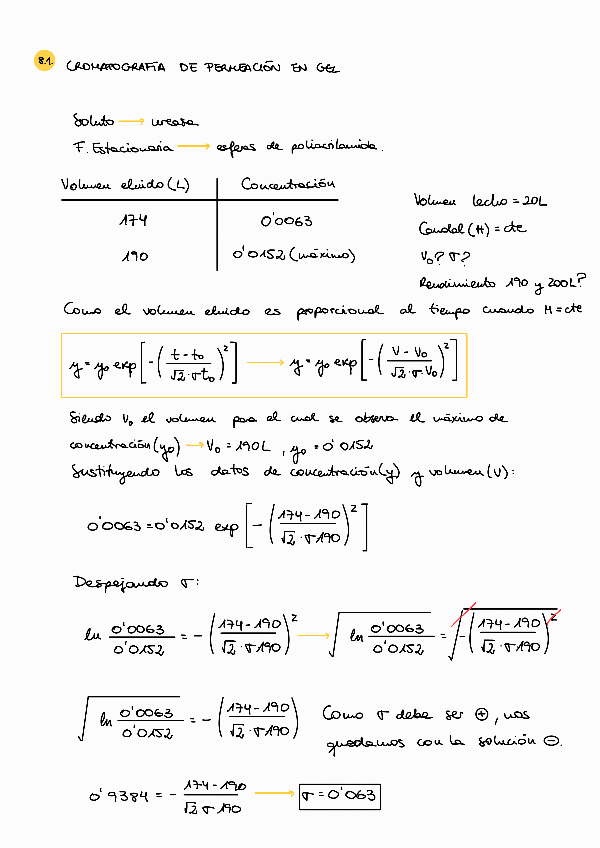 8.1. CROMATOGRAFÍA DE PERMEACIÓN EN GEL
Soluto → ureasa
F. Estacionaria → esferas de poliacrilamida.
Volumen eluido (L) | Concentración
174 | 0'0063
190 | 0'0152 (máximo)
Volumen lecho = 20L
Caudal (H) = cte
V₀? σ?
Rendimiento 190 y 200L?
Como el volumen eluido es proporcional al tiempo cuando H = cte
y = y₀ exp [ - ( (t - t₀) / (√2 · σ t₀) )² ] → y = y₀ exp [ - ( (V - V₀) / (√2 · σ V₀) )² ]
Siendo V₀ el volumen para el cual se observa el máximo de
concentración (y₀) → V₀ = 190L , y₀ = 0'0152
Sustituyendo los datos de concentración (y) y volumen (V):
0'0063 = 0'0152 exp [ - ( (174 - 190) / (√2 · σ 190) )² ]
Despejando σ:
ln (0'0063 / 0'0152) = - ( (174 - 190) / (√2 · σ 190) )² → √( ln (0'0063 / 0'0152) ) = √( - ( (174 - 190) / (√2 · σ 190) )² )
√( ln (0'0063 / 0'0152) ) = - ( (174 - 190) / (√2 · σ 190) ) Como σ debe ser ⊕, nos
quedamos con la solución ⊖.
0'9384 = - (174 - 190) / (√2 σ 190) → σ = 0'063